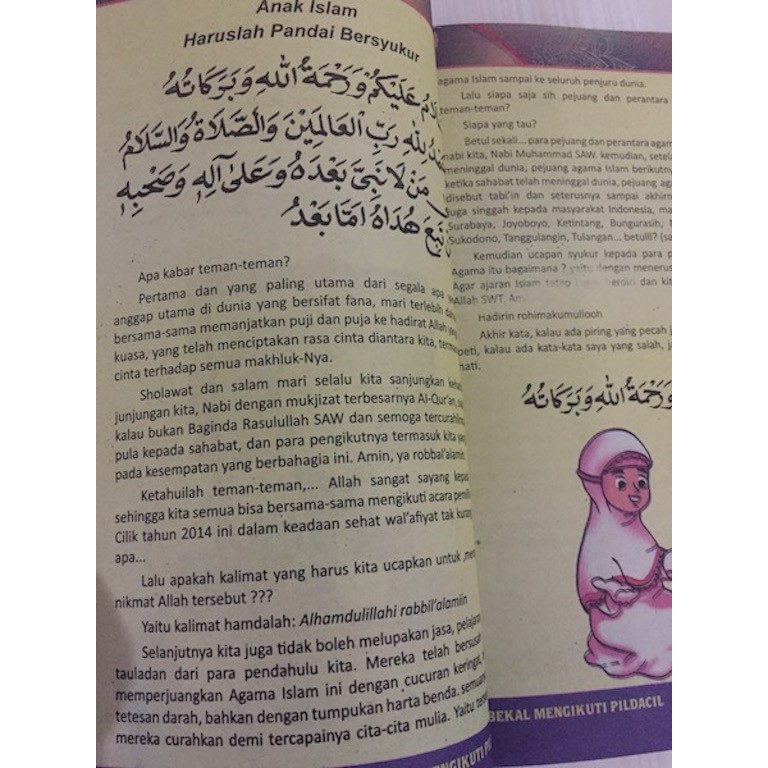 Anak Islam
Haruslah Pandai Bersyukur
عَلَيْكُمْ وَرَحْمَةُ اللهِ وَبَرَكَاتُهُ
رَبِّ الْعَالَمِيْنَ وَالصَّلَاةُ وَالسَّلَامُ
مَنْ لَا نَبِيَّ بَعْدَهُ وَعَلَى آلِهِ وَصَحْبِهِ
هُدَاهُ اَمَّا بَعْدُ
Apa kabar teman-teman?
Pertama dan yang paling utama dari segala apa
anggap utama di dunia yang bersifat fana, mari terlebih
bersama-sama memanjatkan puji dan puja ke hadirat Allah yang
kuasa, yang telah menciptakan rasa cinta diantara kita,
cinta terhadap semua makhluk-Nya.
Sholawat dan salam mari selalu kita sanjungkan
junjungan kita, Nabi dengan mukjizat terbesarnya Al-Qur'an,
kalau bukan Baginda Rasulullah SAW dan semoga
pula kepada sahabat, dan para pengikutnya termasuk kita
pada kesempatan yang berbahagia ini. Amin, ya robbal'alamin.
Ketahuilah teman-teman,... Allah sangat sayang
sehingga kita semua bisa bersama-sama mengikuti acara
Cilik tahun 2014 ini dalam keadaan sehat wal'afiyat tak
apa...
Lalu apakah kalimat yang harus kita ucapkan untuk
nikmat Allah tersebut ???
Yaitu kalimat hamdalah: Alhamdulillahi rabbil'alamiin
Selanjutnya kita juga tidak boleh melupakan jasa,
tauladan dari para pendahulu kita. Mereka telah
memperjuangkan Agama Islam ini dengan cucuran keringat,
tetesan darah, bahkan dengan tumpukan harta benda.
mereka curahkan demi tercapainya cita-cita mulia. Yaitu
agama Islam sampai ke seluruh penjuru dunia.
Lalu siapa saja sih pejuang dan perantara
teman-teman?
Siapa yang tau?
Betul sekali... para pejuang dan perantara
nabi kita, Nabi Muhammad SAW. kemudian,
meninggal dunia, pejuang agama Islam
ketika sahabat telah meninggal dunia, pejuang
disebut tabi'in dan seterusnya sampai
juga singgah kepada masyarakat Indonesia,
Surabaya, Joyoboyo, Ketintang, Bungurasih,
Sukodono, Tanggulangin, Tulangan... betulll?
Kemudian ucapan syukur kepada para
Agama itu bagaimana ? yaitu dengan
Agar ajaran Islam tetap dan
Allah SWT.
Hadirin rohimakumuliooh
Akhir kata, kalau ada piring yang pecah
peti, kalau ada kata-kata saya yang salah,
hati.
وَرَحْمَةُ اللهِ وَبَرَكَاتُهُ
BEKAL MENGIKUTI PILDACIL